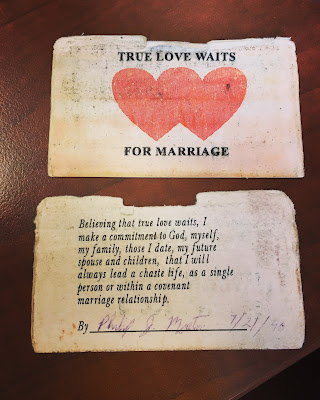 TRUE LOVE WAITS
FOR MARRIAGE
Believing that true love waits, I
make a commitment to God, myself,
my family, those I date, my future
spouse and children, that I will
always lead a chaste life, as a single
person or within a covenant
marriage relationship.
By Philip J.